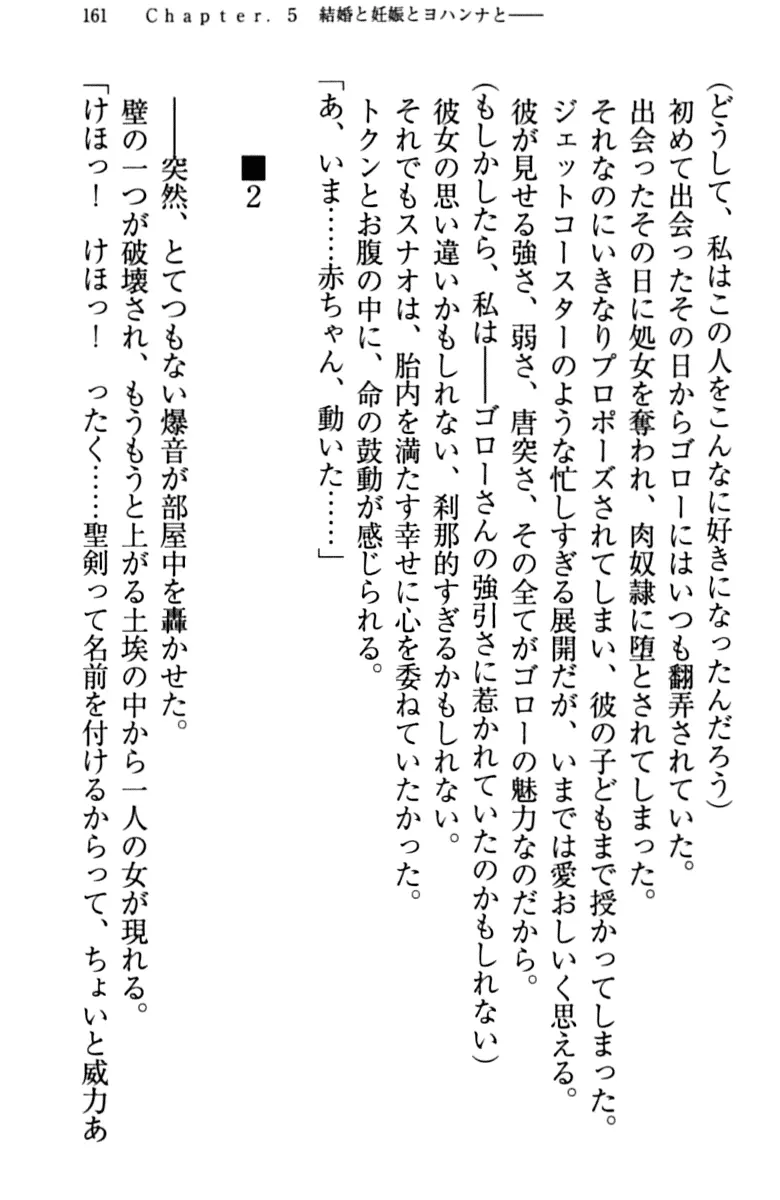 161　Chapter. 5　結婚と妊娠とヨハンナと――
（どうして、私はこの人をこんなに好きになったんだろう）
初めて出会ったその日からゴローにはいつも翻弄されていた。
出会ったその日に処女を奪われ、肉奴隷に堕とされてしまった。
それなのにいきなりプロポーズされてしまい、彼の子どもまで授かってしまった。
ジェットコースターのような忙しすぎる展開だが、いまでは愛おしいく思える。
彼が見せる強さ、弱さ、唐突さ、その全てがゴローの魅力なのだから。
（もしかしたら、私は――ゴローさんの強引さに惹かれていたのかもしれない）
彼女の思い違いかもしれない、刹那的すぎるかもしれない。
それでもスナオは、胎内を満たす幸せに心を委ねていたかった。
トクンとお腹の中に、命の鼓動が感じられる。
「あ、いま……赤ちゃん、動いた……」
■2
――突然、とてつもない爆音が部屋中を轟かせた。
壁の一つが破壊され、もうもうと上がる土埃の中から一人の女が現れる。
「けほっ！　けほっ！　ったく……聖剣って名前を付けるからって、ちょいと威力あ